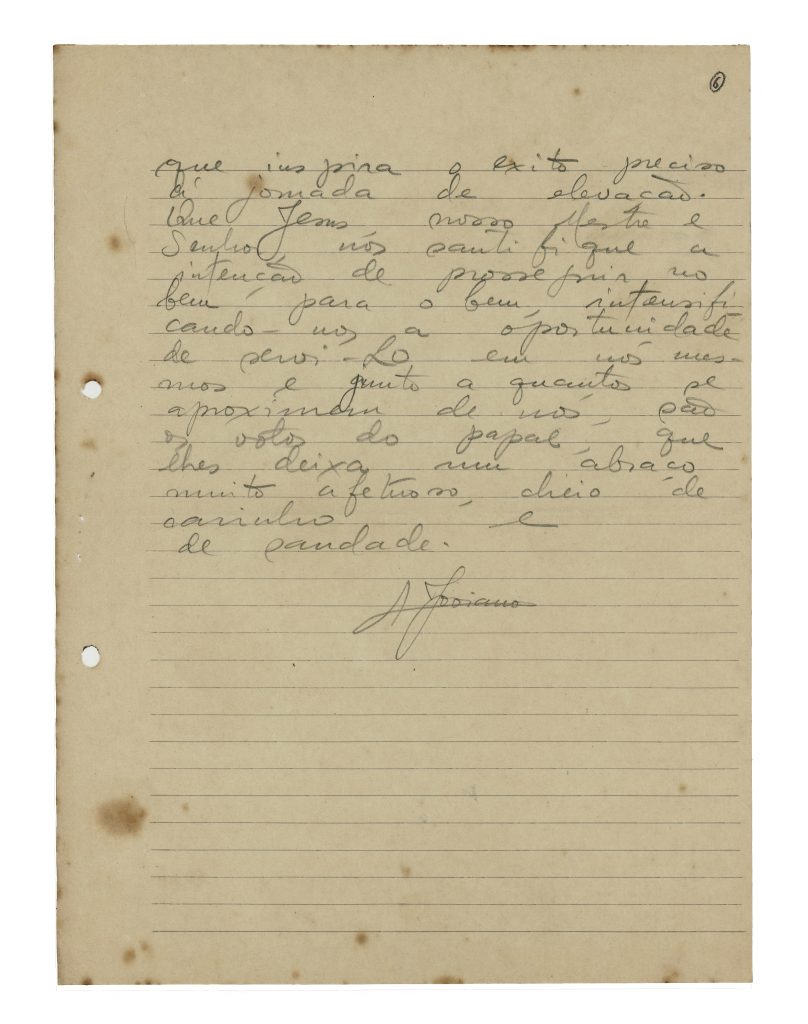 6
que inspira o exito preciso
á jornada de elevacão.
Que Jesus nosso Mestre e
Senhor, nós santifique a
intenção de prosseguir no
bem, para o bem, intensifi-
cando-nos a oportunidade
de servi-Lo em nós mes-
mos e junto a quantos se
aproximam de nós, são
os votos do papae, que
lhes deixa um abraço
muito afetuoso, cheio de
carinho e
de saudade.
A Joviano